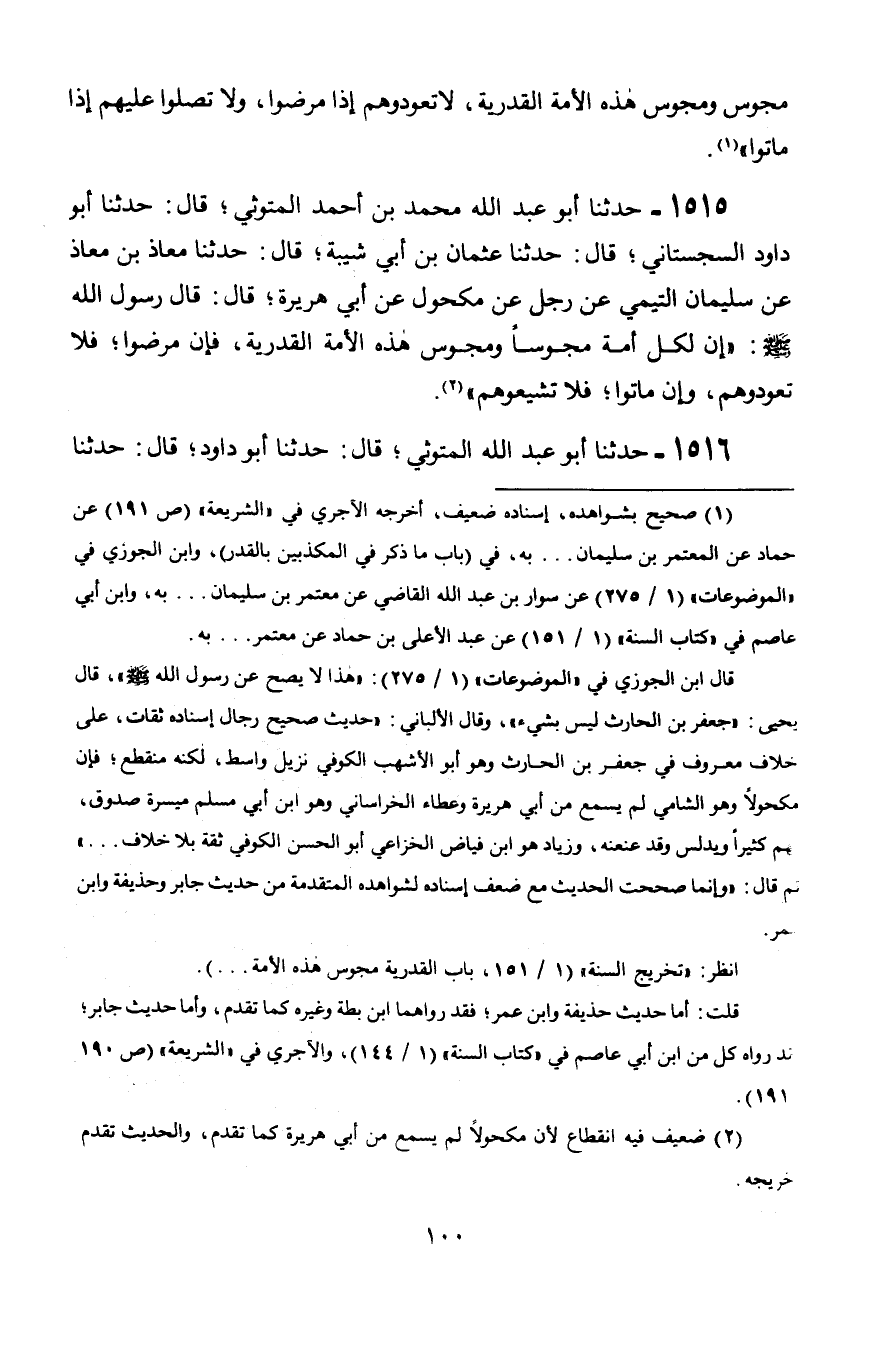 مجوس ومجوس هٰذه الأمة القدرية، لاتعودوهم إذا مرضوا، ولا تصلوا عليهم إذا
ماتوا»(١).
١٥١٥ - حدثنا أبو عبد الله محمد بن أحمد المتوثي؛ قال: حدثنا أبو
داود السجستاني؛ قال: حدثنا عثمان بن أبي شيبة؛ قال: حدثنا معاذ بن معاذ
عن سليمان التيمي عن رجل عن مكحول عن أبي هريرة؛ قال: قال رسول الله
ﷺ: «إن لكل أمة مجوساً ومجوس هٰذه الأمة القدرية، فإن مرضوا؛ فلا
تعودوهم، وإن ماتوا؛ فلا تشيعوهم»(٢).
١٥١٦ - حدثنا أبو عبد الله المتوثي؛ قال: حدثنا أبو داود؛ قال: حدثنا
(١) صحيح بشواهده، إسناده ضعيف، أخرجه الآجري في «الشريعة» (ص ١٩١) عن
حماد عن المعتمر بن سليمان... به، في (باب ما ذكر في المكذبين بالقدر)، وابن الجوزي في
«الموضوعات» (١ / ٢٧٥) عن سوار بن عبد الله القاضي عن معتمر بن سليمان... به، وابن أبي
عاصم في «كتاب السنة» (١ / ١٥١) عن عبد الأعلى بن حماد عن معتمر... به.
قال ابن الجوزي في «الموضوعات» (١ / ٢٧٥): «هٰذا لا يصح عن رسول الله ﷺ»، قال
يحيى: «جعفر بن الحارث ليس بشيء»، وقال الألباني: «حديث صحيح رجال إسناده ثقات، على
خلاف معروف في جعفر بن الحارث وهو أبو الأشهب الكوفي نزيل واسط، لٰكنه منقطع؛ فإن
مكحولاً وهو الشامي لم يسمع من أبي هريرة وعطاء الخراساني وهو ابن أبي مسلم ميسرة صدوق،
يهم كثيراً ويدلس وقد عنعنه، وزياد هو ابن فياض الخزاعي أبو الحسن الكوفي ثقة بلا خلاف...»
ثم قال: «وإنما صححت الحديث مع ضعف إسناده لشواهده المتقدمة من حديث جابر وحذيفة وابن
عمر.
انظر: «تخريج السنة» (١ / ١٥١، باب القدرية مجوس هٰذه الأمة...).
قلت: أما حديث حذيفة وابن عمر؛ فقد رواهما ابن بطة وغيره كما تقدم، وأما حديث جابر؛
ند رواه كل من ابن أبي عاصم في «كتاب السنة» (١ / ١٤٤)، والآجري في «الشريعة» (ص ١٩٠
١٩١).
(٢) ضعيف فيه انقطاع لأن مكحولاً لم يسمع من أبي هريرة كما تقدم، والحديث تقدم
خريجه.
١٠٠